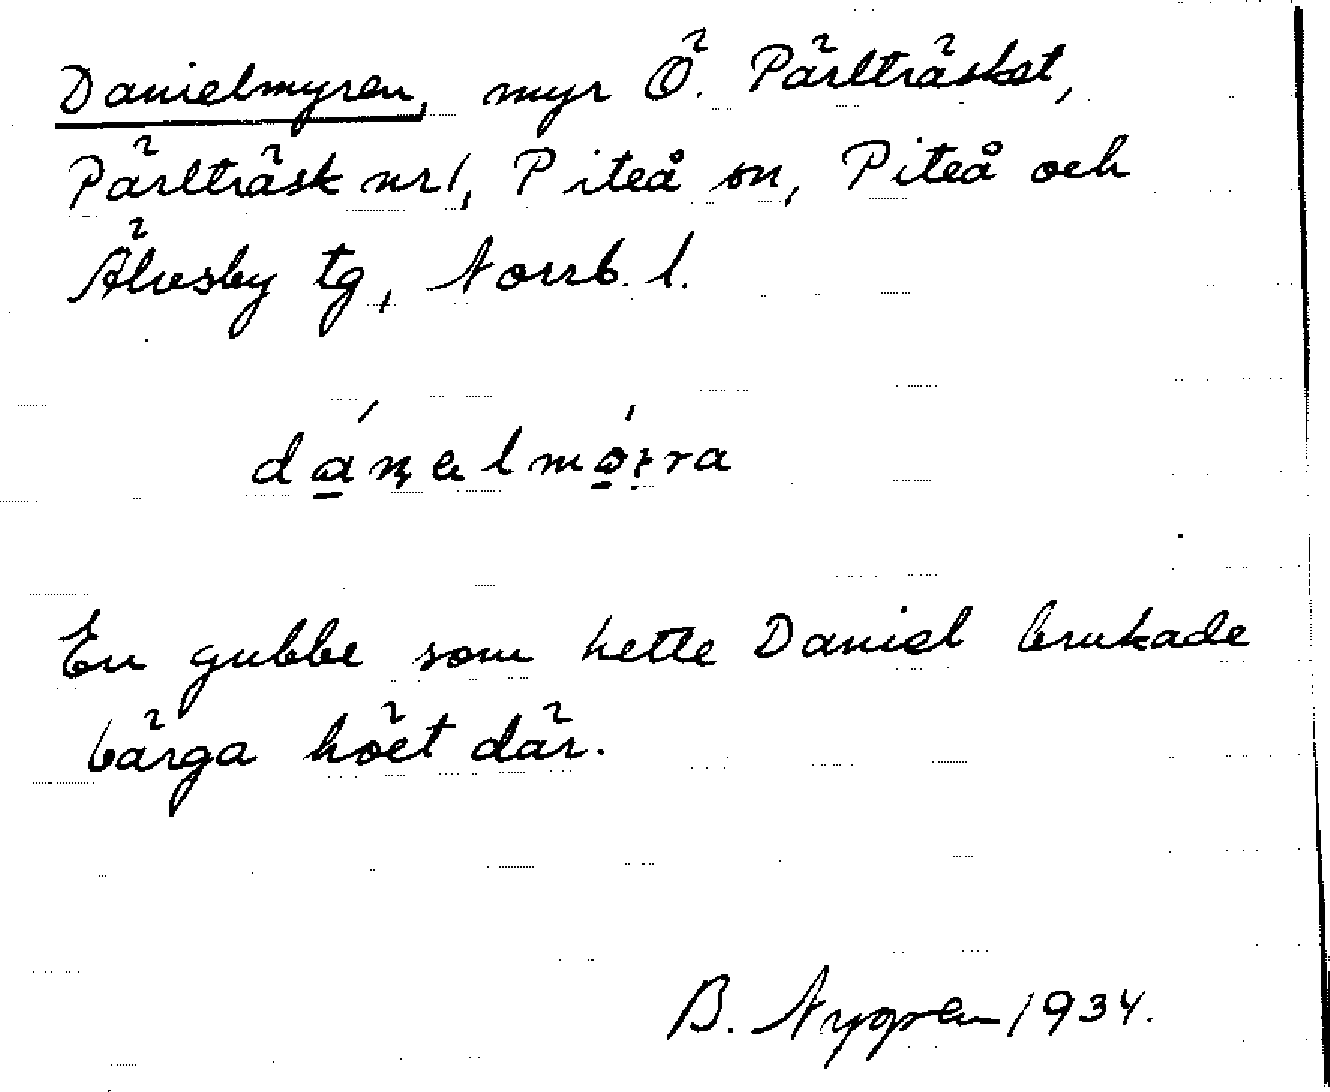 Danielmyren, myr Ö. Pärlträsket,
Pärlträsk nr 1, Piteå sn, Piteå och
Älvsby tg, Norrb. l.
En gubbe som hette Daniel brukade
bärga höet där.
B. Nygren 1934.